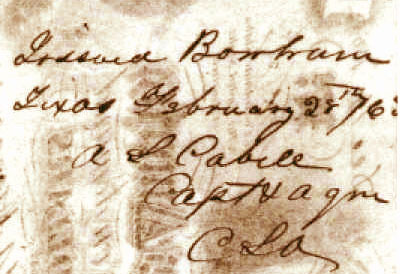 Issued Bonham
Texas February 28th /63
A L Cabell
Capt & A qm
CSA